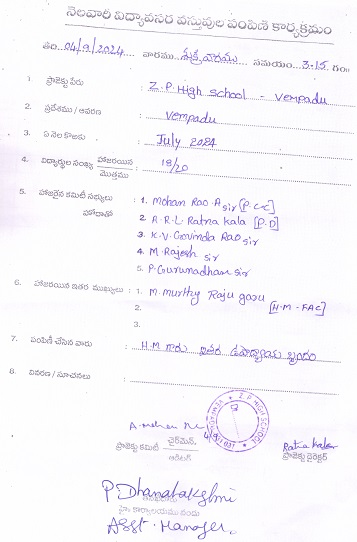 నెలవారీ విద్యావసర వస్తువుల పంపిణీ కార్యక్రమం
తేది 04/9/2024 వారము శుక్రవారము సమయం 3-15 గం॥
1. ప్రాజెక్టు పేరు : Z.P. High School - Vempadu
2. ప్రదేశము / ఆవరణ : Vempadu
3. ఏ నెల కొరకు : July 2024
4. విద్యార్థుల సంఖ్య హాజరయిన / మొత్తము : 18/20
5. హాజరైన కమిటీ సభ్యులు హోదాతో : 1. Mohan Rao.A sir [P.C.C]
2. A.R.L Ratna Kala [P.D]
3. K.V. Govinda Rao sir
4. M. Rajesh sir
5. P. Gurunadham sir
6. హాజరయిన ఇతర ముఖ్యులు : 1. M. Murthy Raju garu [H.M - FAC]
2.
3.
7. పంపిణీ చేసిన వారు : H.M గారు ఇతర ఉపాధ్యాయ బృందం
8. వివరణ / సూచనలు :
Z.P. HIGH SCHOOL
ప్రాజెక్టు కమిటీ చైర్‌మెన్, / ఆడిటర్
Ratna kala
ప్రాజెక్టు డైరెక్టర్
P Dhanalakshmi
Asst. Manager.